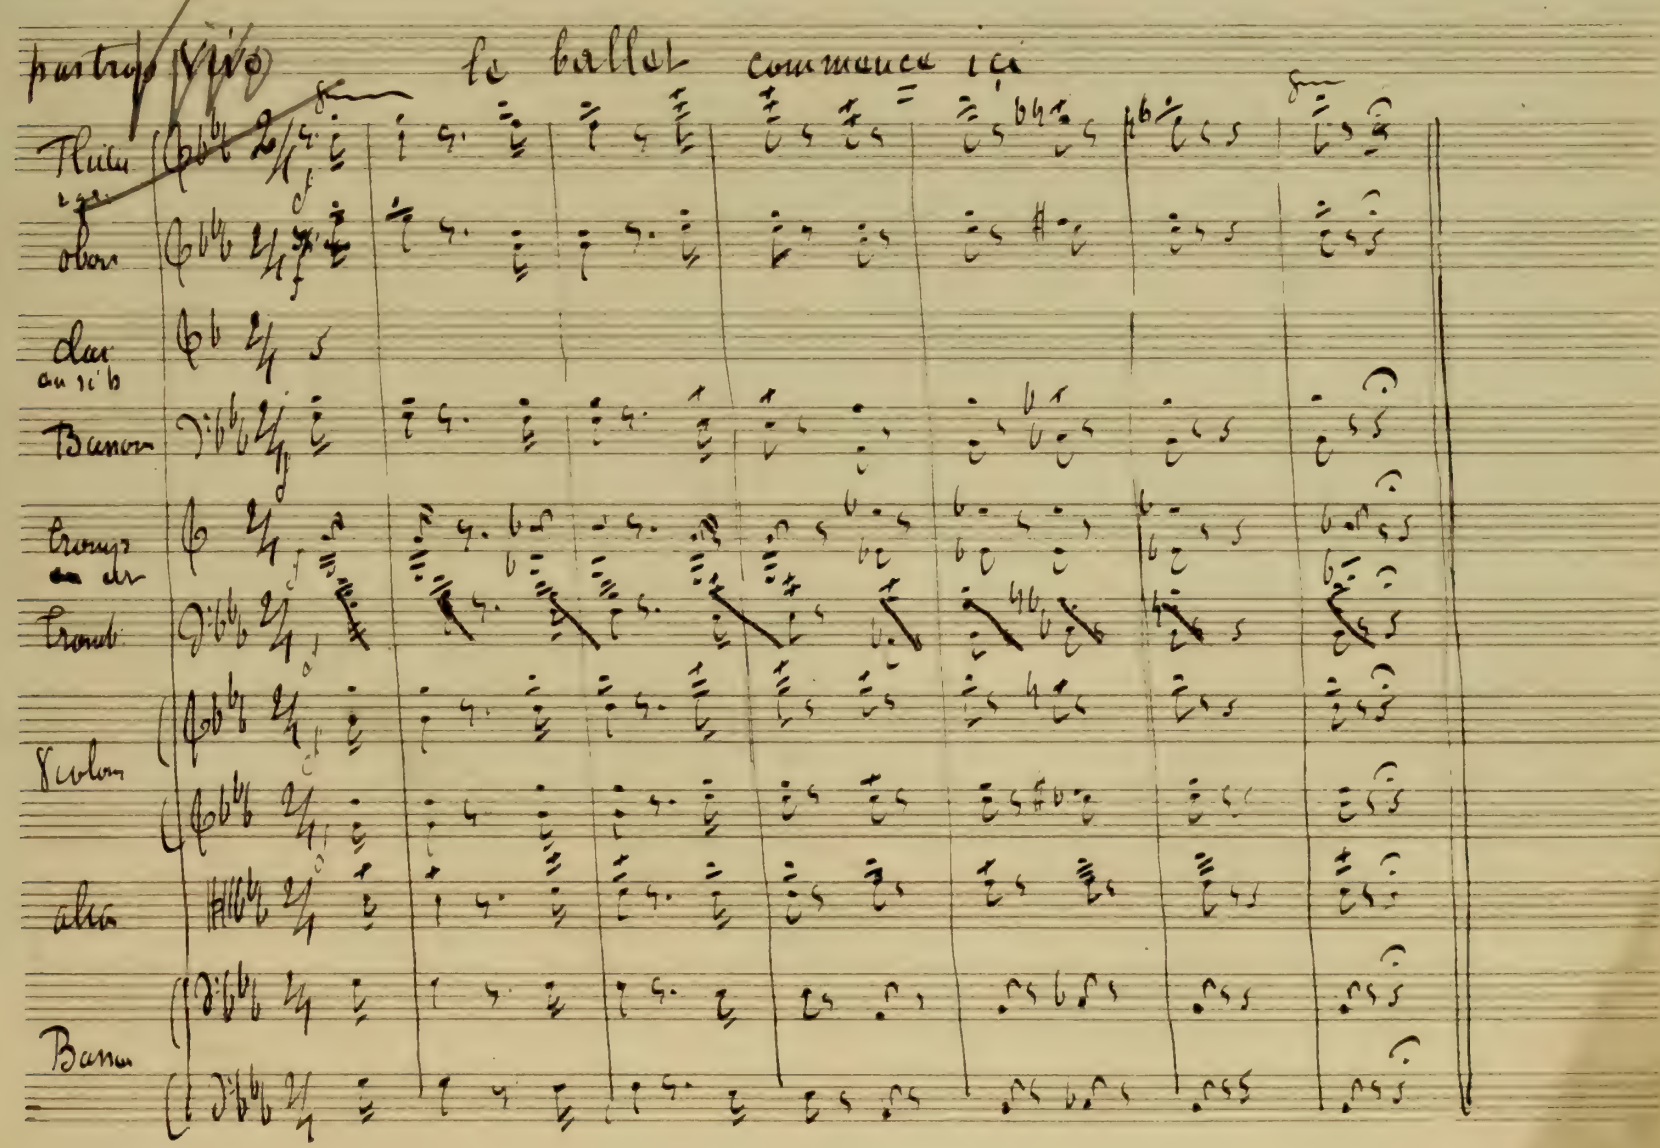 pas trop vivo le ballet commence ici
oboe
clar
en si b
Basson
tromp
en ut
tromb
Violons
alto
Basses